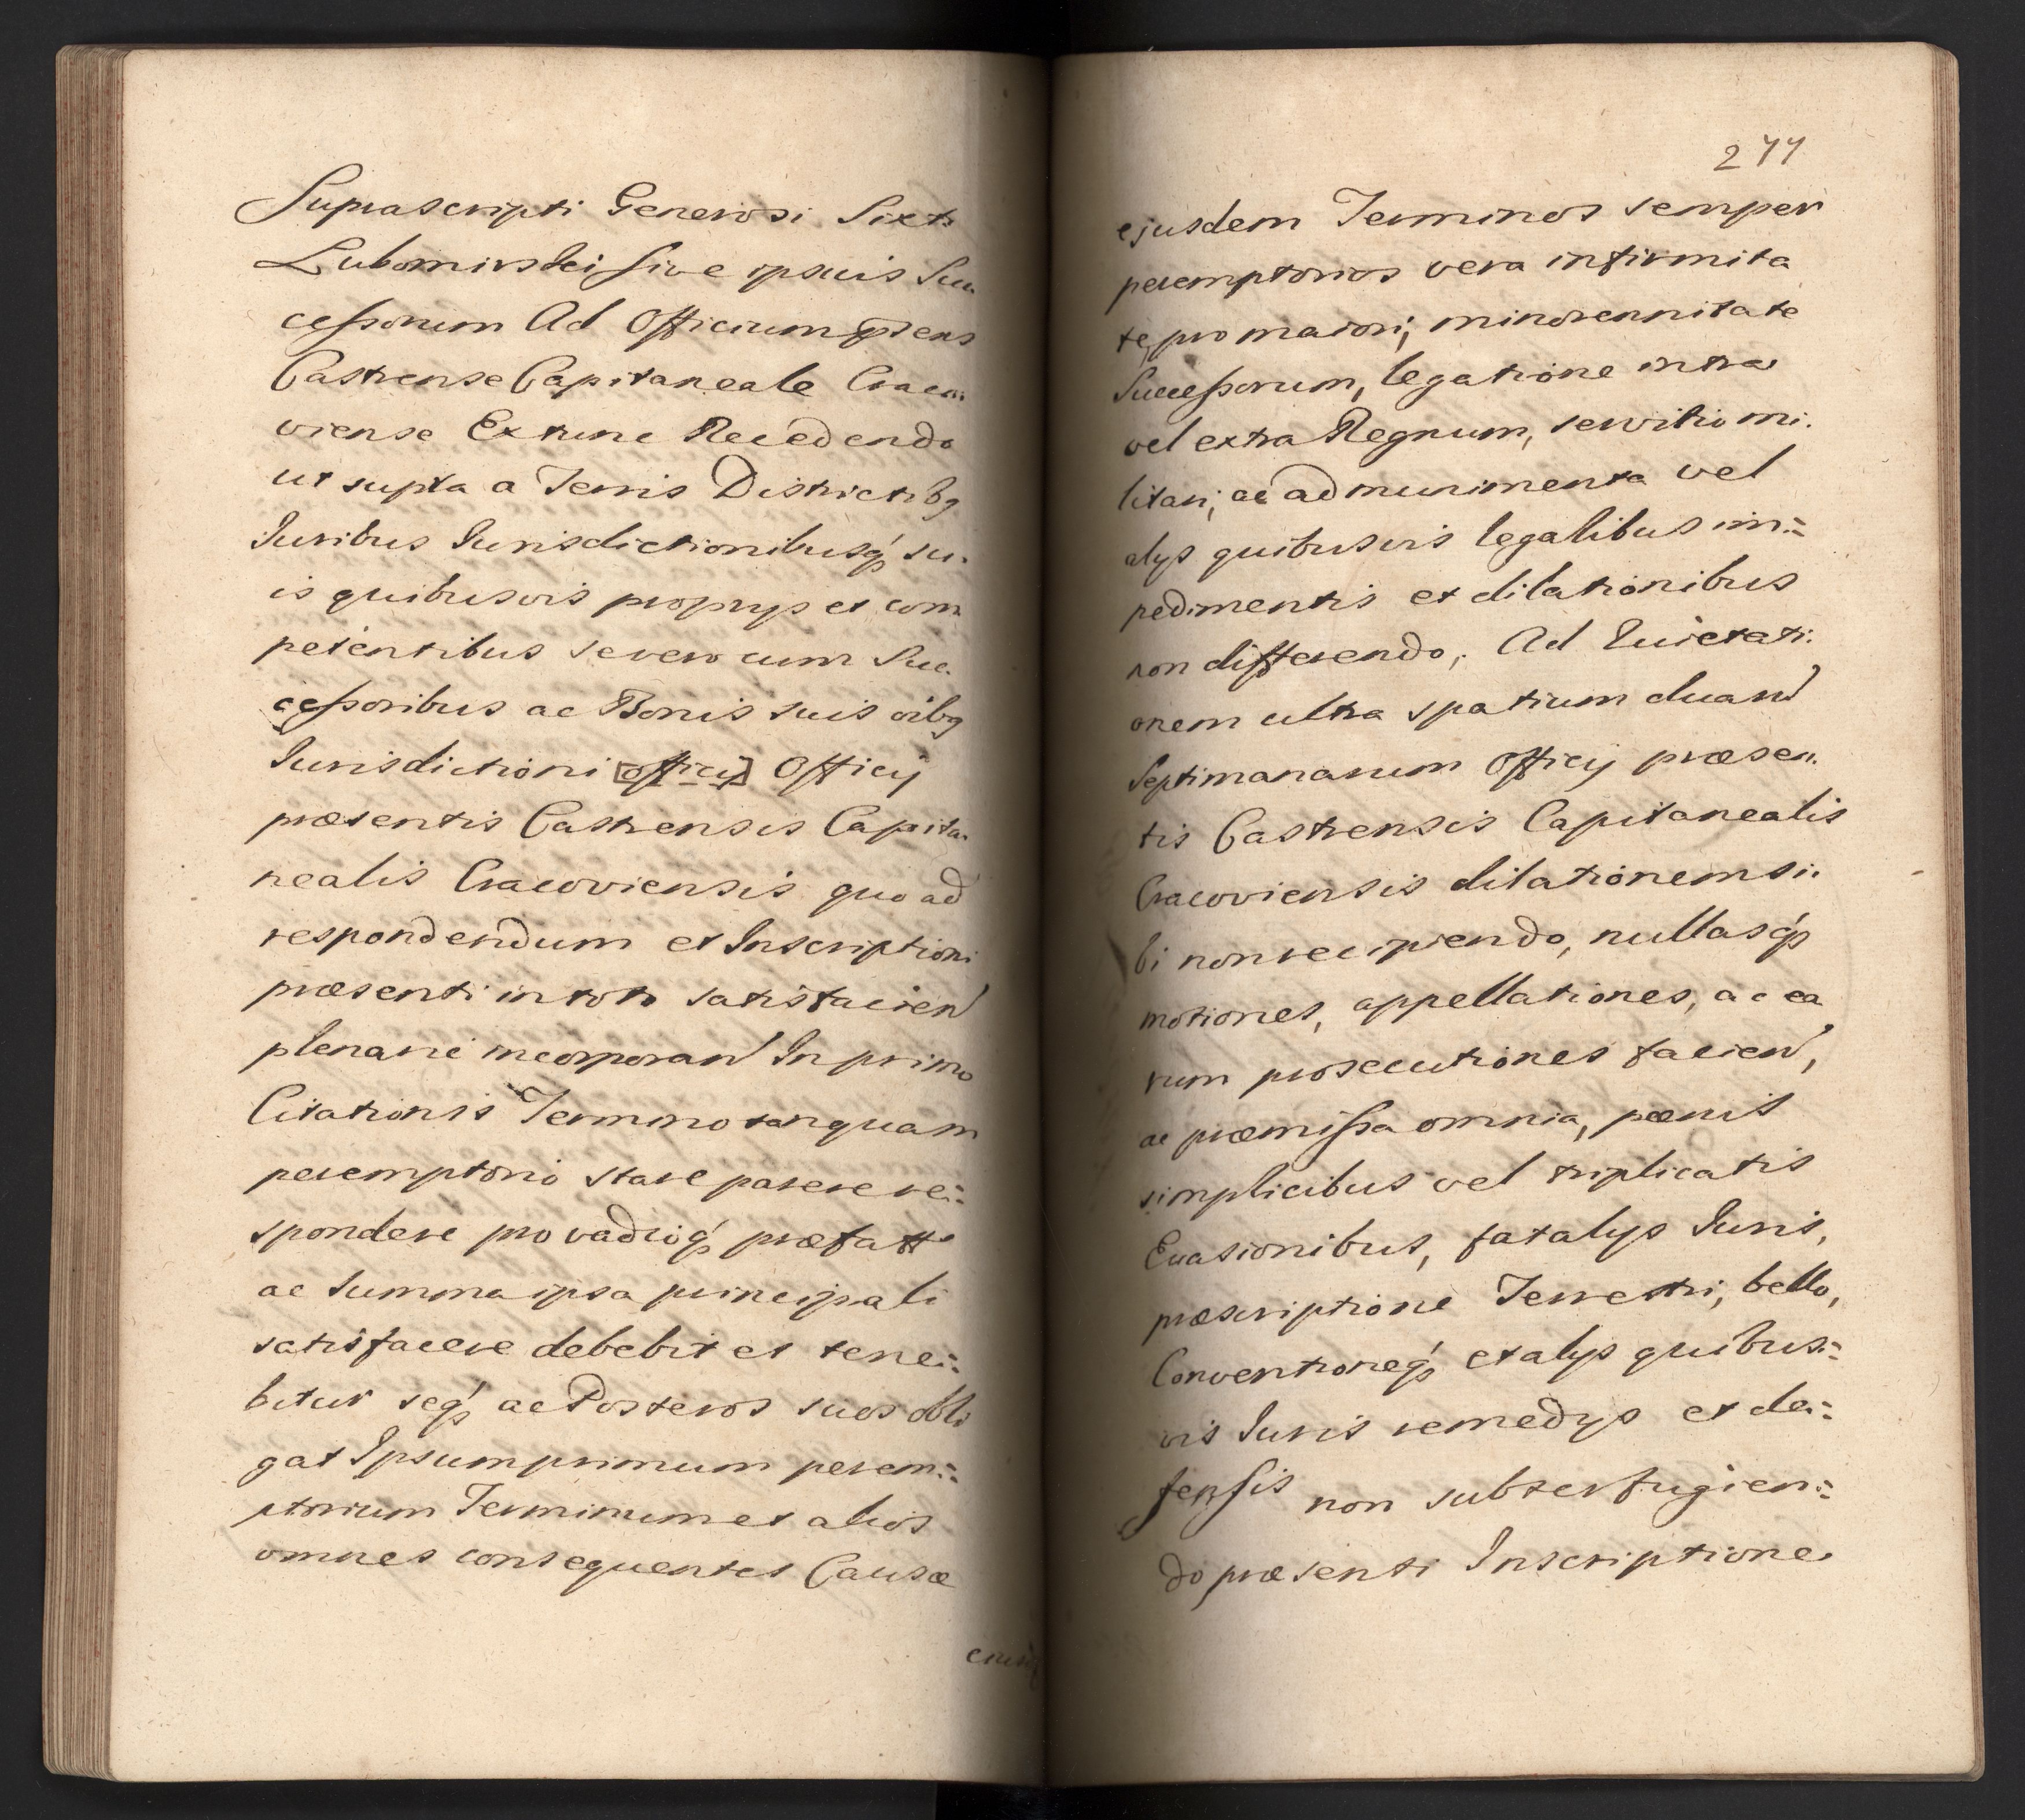 Suprascripti Generosi Sixti
Lubomirski sive ipsius Suc
cessorum Ad Officium pŝens
Castrense Capitaneale Craco
viense Extunc Recedendo
ut supra a Terris Districtibq
Iuribus Iurisdictionibusq́ su.
is quibusvis proprys et com
petentibus severo cum Suc.
cessoribus ac Bonis suis oibq
Iurisdictioni [officij] Officij
præsentis Castrensis Capita
nealis Cracoviensis quo ad
respondendum et Inscriptioni
præsenti in toto satisfacien
plenarie incorporan In primo
Citationis Termino tanquam
peremptorio stare parere re:
spondere pro vadioq́ præfatto
ac Summa ipsa principali
satisfacere debebit et tene:
bitur seq́ ac Posteros suos obli
gat Ipsum primum perem:
ptorium Terminum et alios
omnes consequentes Causæ
277
ejusdem Terminos semper
peremptorios vera infirmita
te, pro maiori, minorennitate
Successorum, legatione intra
vel extra Regnum, servitio mi.
litari, ac ad munimenta vel
alys quibusvis legalibus im:
pedimentis et dilationibus
non differendo, Ad Quietati.
onem ultra spatium duarũ
Septimanarum Officij præsen.
tis Castrensis Capitanealis
Cracoviensis dilationem si.
bi non recipiendo, nullasq́
motiones, appellationes, ac ea
rum prosecutiones facien,
ac præmissa omnia, pœnis
simplicibus vel triplicatis
Evasionibus, fatalys Iuris,
præscriptione Terrestri, bello,
Conventioneq́ et alys quibus:
vis Iuris remedys et de:
fensis non subterfugien:
do præsenti Inscriptione